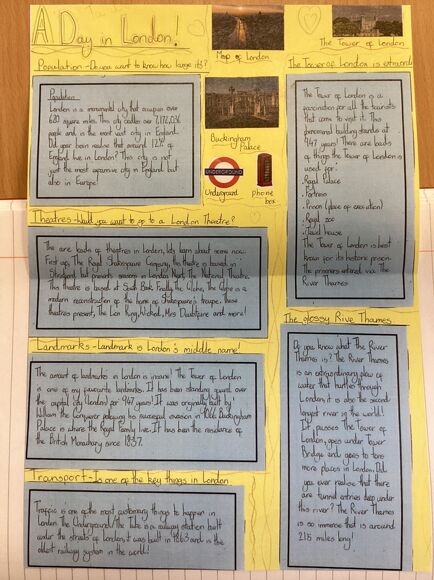 A Day in London!
Population - Do you want to know how large it is?
Population
London is a monumental city that occupies over
620 square miles. This city cradles over 7,172,036
people and is the most vast city in England.
Did you even realise that around 12% of
England live in London? This city is not
just the most expensive city in England but
also in Europe!
Map of London
Buckingham
Palace
UNDERGROUND
Underground
phone
box
The Tower of London
The Tower of London is
The Tower of London is a
fascination for all the tourists
that come to visit it. This
phenomenal building stands at
947 years! There are loads
of things the Tower of London is
used for:
. Royal Palace
. Fortress
. Prison (place of execution)
. Royal zoo
. Jewel house
The Tower of London is best
know for its historic prison
the prisoners entered via The
River Thames
Theatres - Would you want to go to a London Theatre?
The are loads of theatres in London, let's learn about some now.
First up, The Royal Shakespeare Company, this theatre is based in
Stratford but presents season in London. Next, The National Theatre.
This theatre is largest at South Bank. Finally, The Globe, The Globe is a
modern reconstruction of the home of Shakespeare's troupe. These
theatres present, The Lion King, Wicked, Mrs Doubtfire and more!
Landmarks - Landmark is London's middle name!
The amount of landmarks in London is insane! The Tower of London
is one of my favourite landmarks. It has been standing guard over
the capital city (London) for 947 years! It was originally built by
William the Conqueror following his successful invasion in 1066. Buckingham
Palace is where the Royal Family live. It has been the residence of
the British Monarchy since 1837.
Transport - Is one of the key things in London
Traffic is one of the most customary things to happen in
London. The Underground/The Tube is a railway station built
under the streets of London, it was built in 1863 and is the
oldest railway system in the world!
The glossy River Thames
Do you know what The River
Thames is? The River Thames
is an extraordinary flow of
water that hurtles through
London, it is also the second
longest river in the world!
It passes The Tower of
London, goes under Tower
Bridge and goes to tons
more places in London. Did
you ever realise that there
are tunnel entries deep under
this river? The River Thames
is so immense that is around
215 miles long!